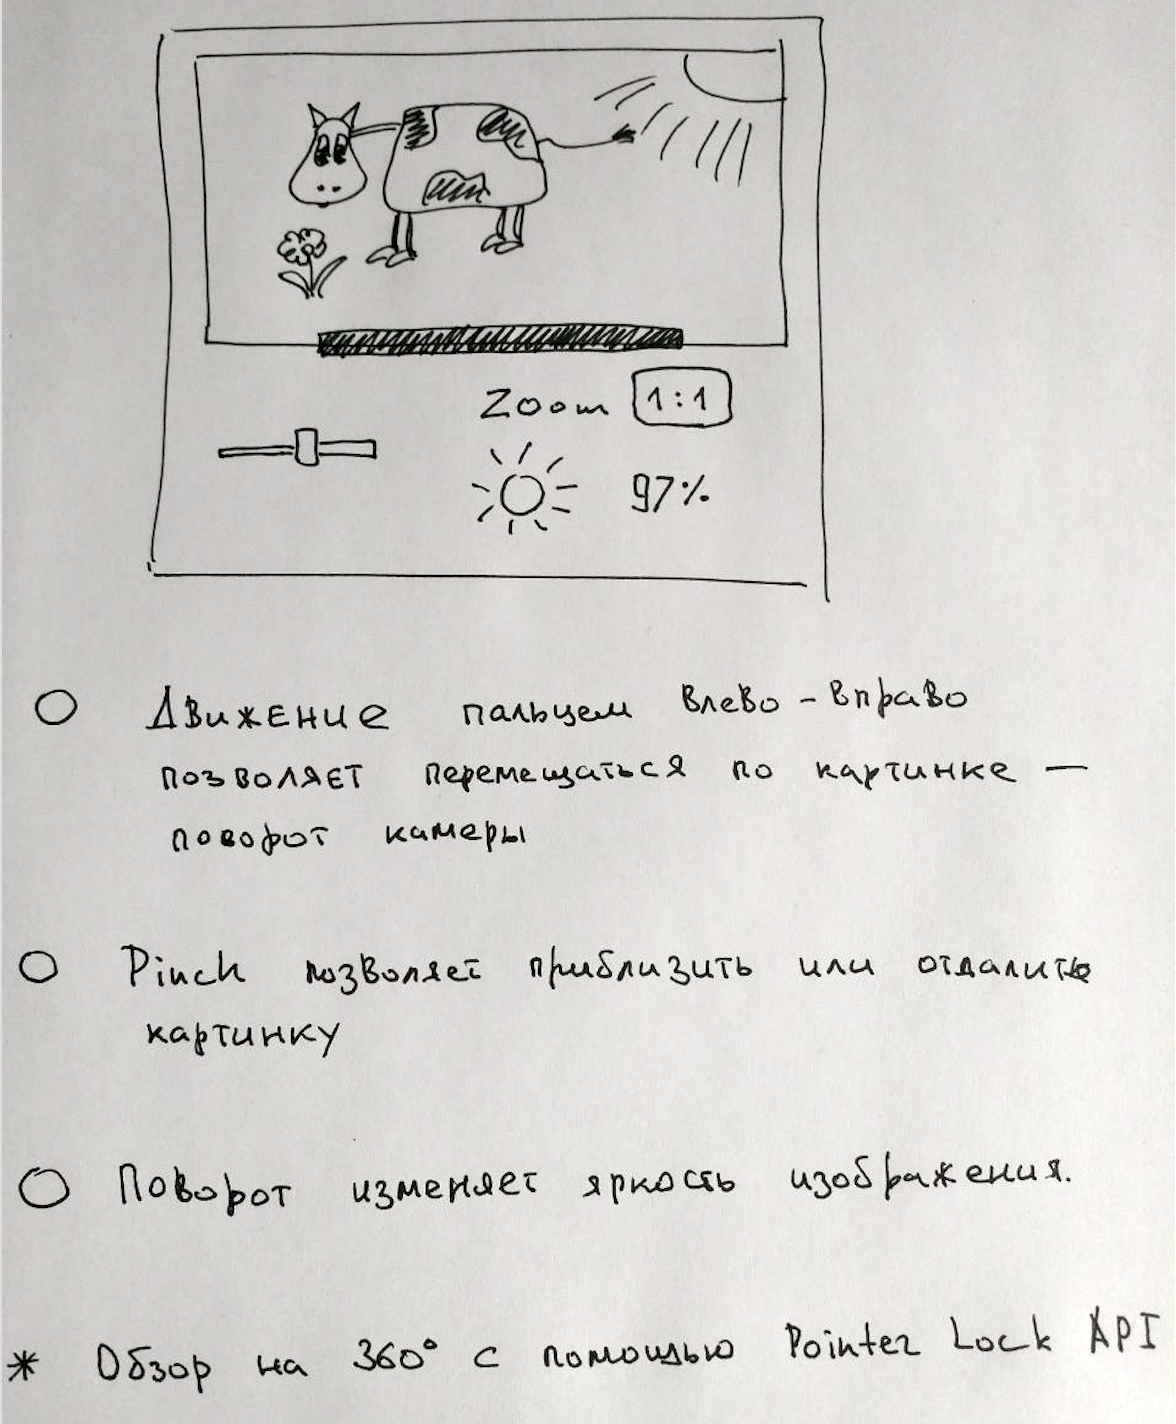 Zoom 1:1
97%
Движение пальцем влево-вправо
позволяет перемещаться по картинке —
поворот камеры
Pinch позволяет приблизить или отдалить
картинку
Поворот изменяет яркость изображения.
* Обзор на 360° с помощью Pointer Lock API